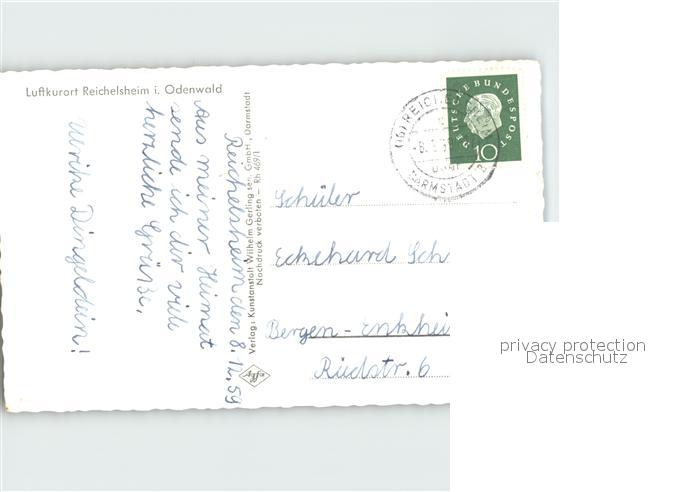 Luftkurort Reichelsheim i. Odenwald
Reichelsheim den 8.12.59
Aus meiner Heimat
sende ich dir viele
herzliche Grüße.
Ulrike Dingeldein!
Verlag: Kunstanstalt Wilhelm Gerling sen. GmbH., Darmstadt
Nachdruck verboten — Rh 469/1
Agfa
DEUTSCHE BUNDESPOST
10
DARMSTADT
Schüler
Eckehard Sch
Bergen-Enkhei
Riedstr. 6
privacy protection
Datenschutz